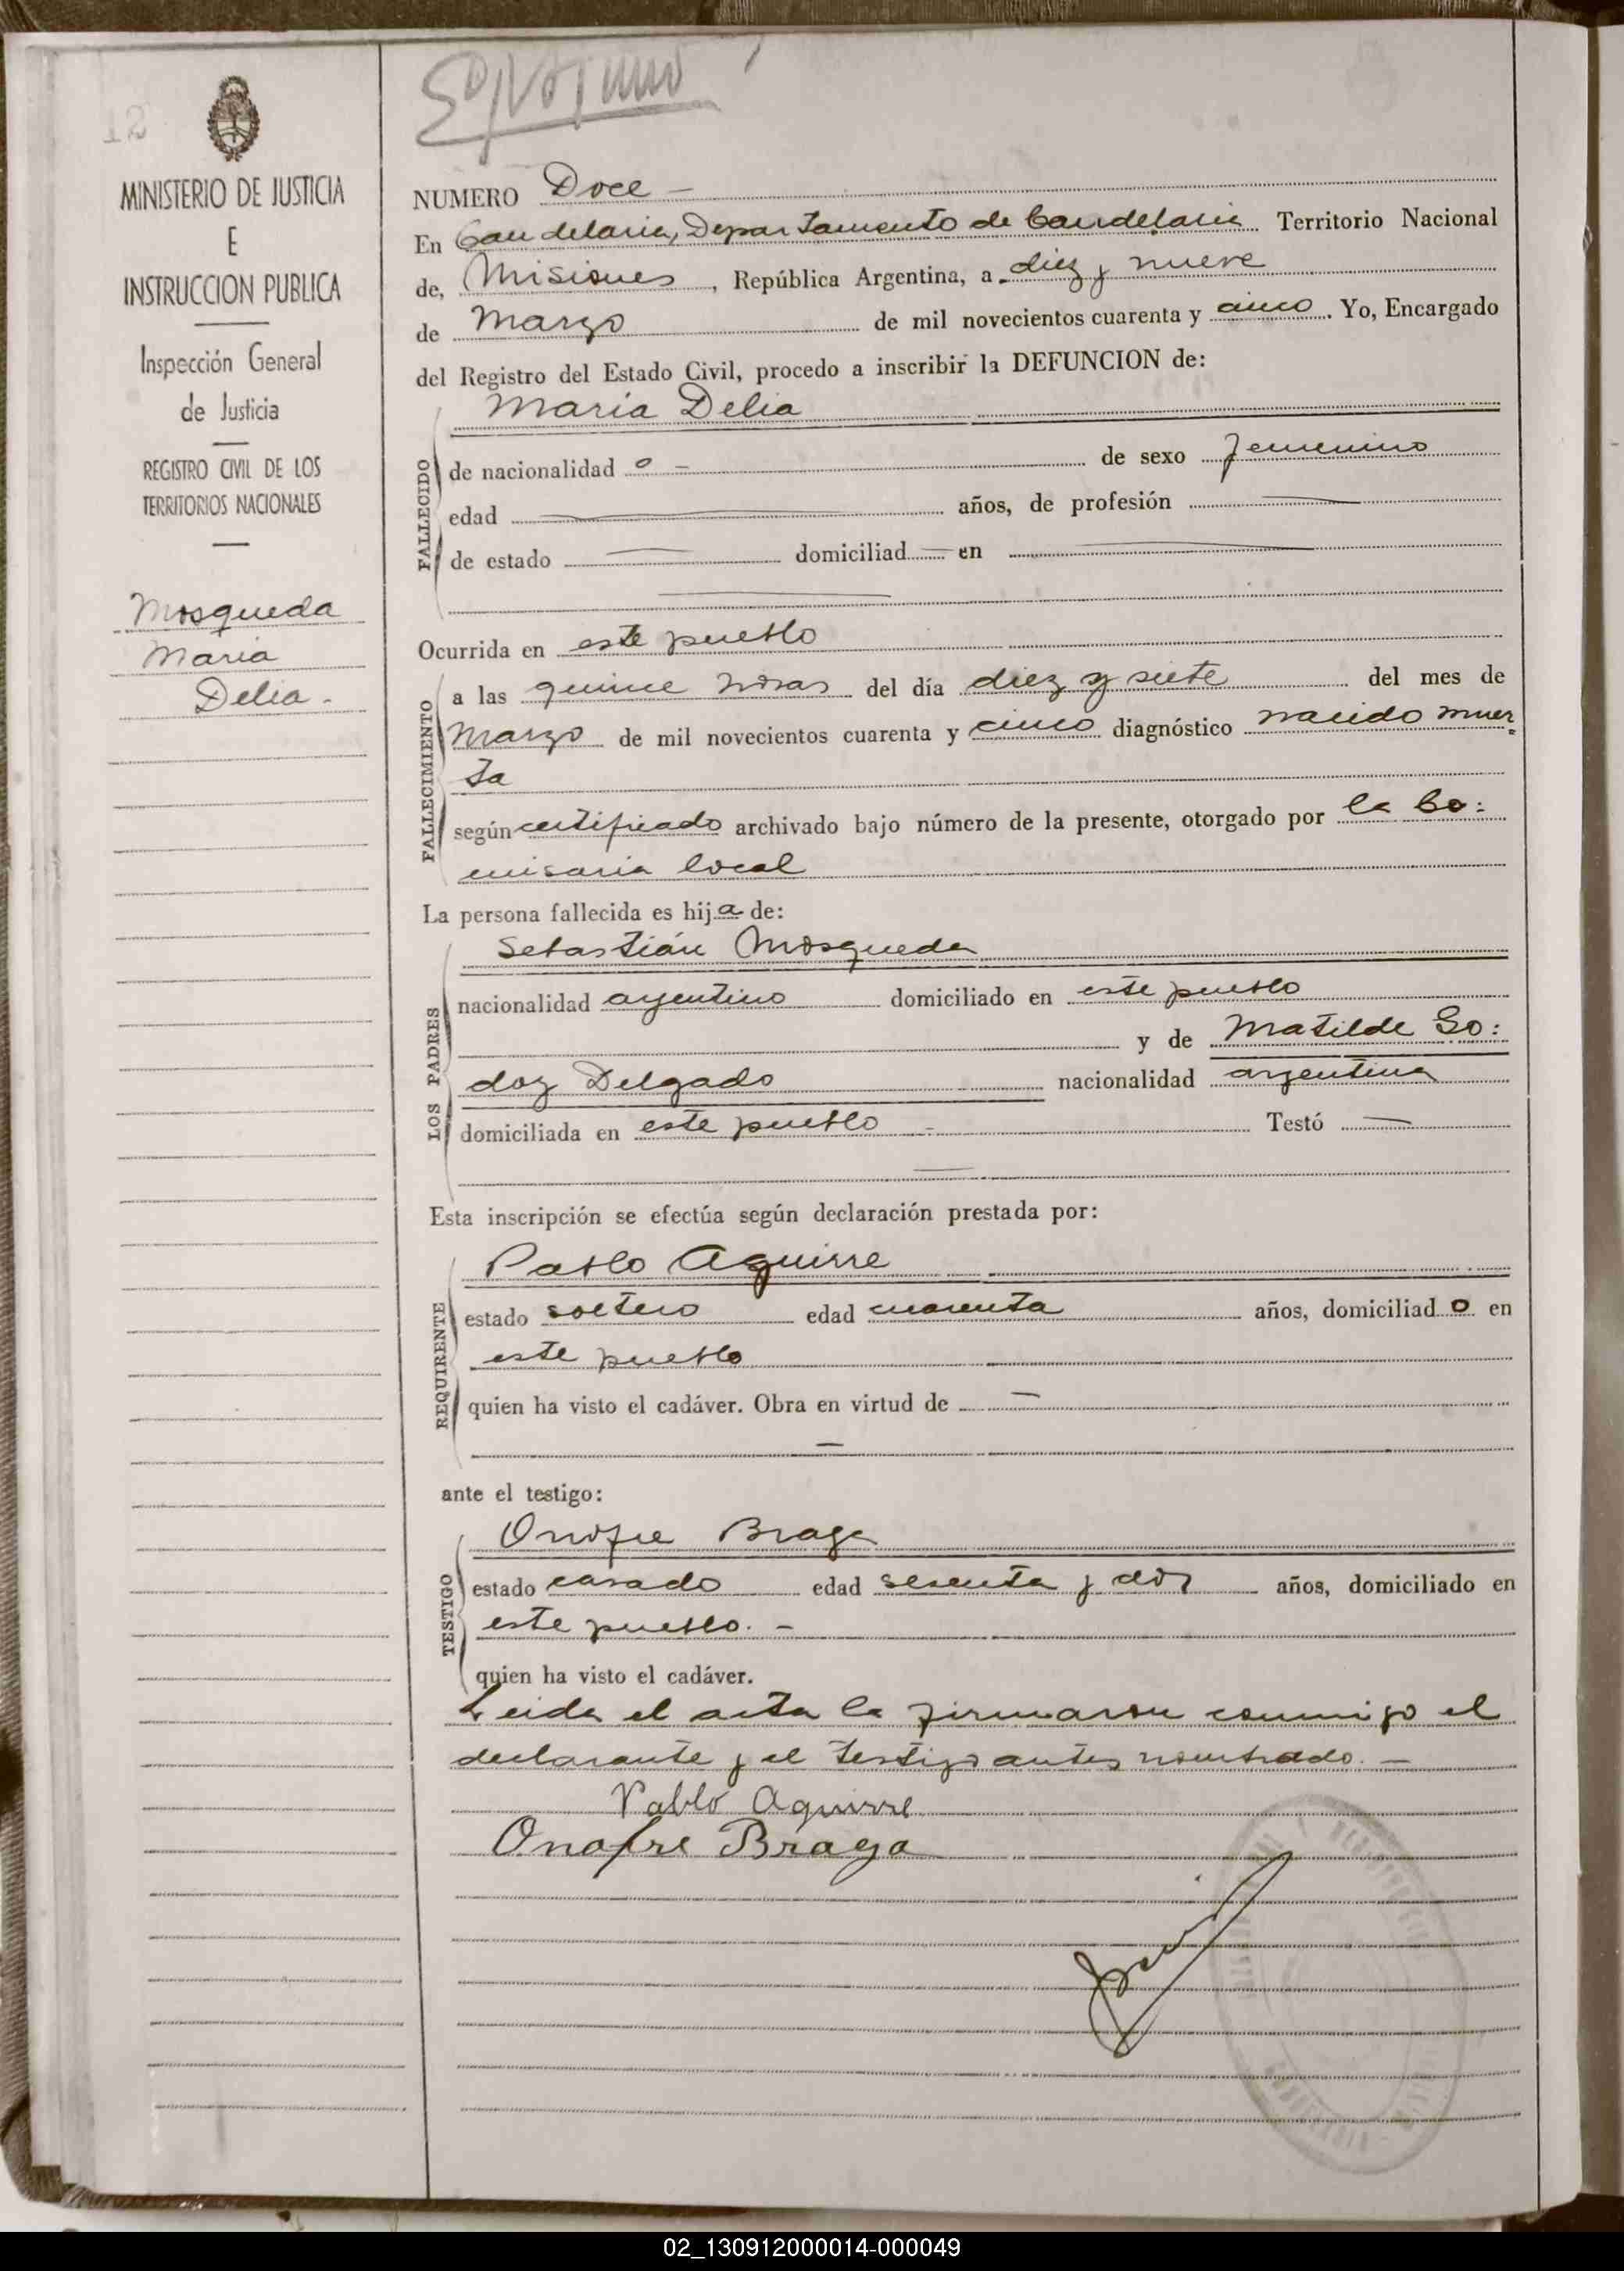 12
MINISTERIO DE JUSTICIA
E
INSTRUCCION PUBLICA
Inspección General
de Justicia
REGISTRO CIVIL DE LOS
TERRITORIOS NACIONALES
Mosqueda
Maria
Delia.
NUMERO Doce -
En Candelaria, Departamento de Candelaria Territorio Nacional
de, Misiones, República Argentina, a diez y nueve
de Marzo de mil novecientos cuarenta y cinco. Yo, Encargado
del Registro del Estado Civil, procedo a inscribir la DEFUNCION de:
María Delia
FALLECIDO
de nacionalidad o - de sexo femenino
edad años, de profesión
de estado domiciliad en
Ocurrida en este pueblo
FALLECIMIENTO
a las quince horas del día diez y siete del mes de
Marzo de mil novecientos cuarenta y cinco diagnóstico nacido muer
ta
según certificado archivado bajo número de la presente, otorgado por la Co:
misaria local
La persona fallecida es hija de:
LOS PADRES
Sebastián Mosqueda
nacionalidad argentino domiciliado en este pueblo
y de Matilde Go:
doz Delgado nacionalidad argentina
domiciliada en este pueblo - Testó —
Esta inscripción se efectúa según declaración prestada por:
REQUIRENTE
Pablo Aguirre
estado soltero edad cuarenta años, domiciliado en
este pueblo
quien ha visto el cadáver. Obra en virtud de —
ante el testigo:
TESTIGO
Onofre Braga
estado casado edad sesenta y dos años, domiciliado en
este pueblo. -
quien ha visto el cadáver.
Leida el acta la firmaron conmigo el
declarante y el testigo antes nombrado. —
Pablo Aguirre
Onofre Braga
02_130912000014-000049